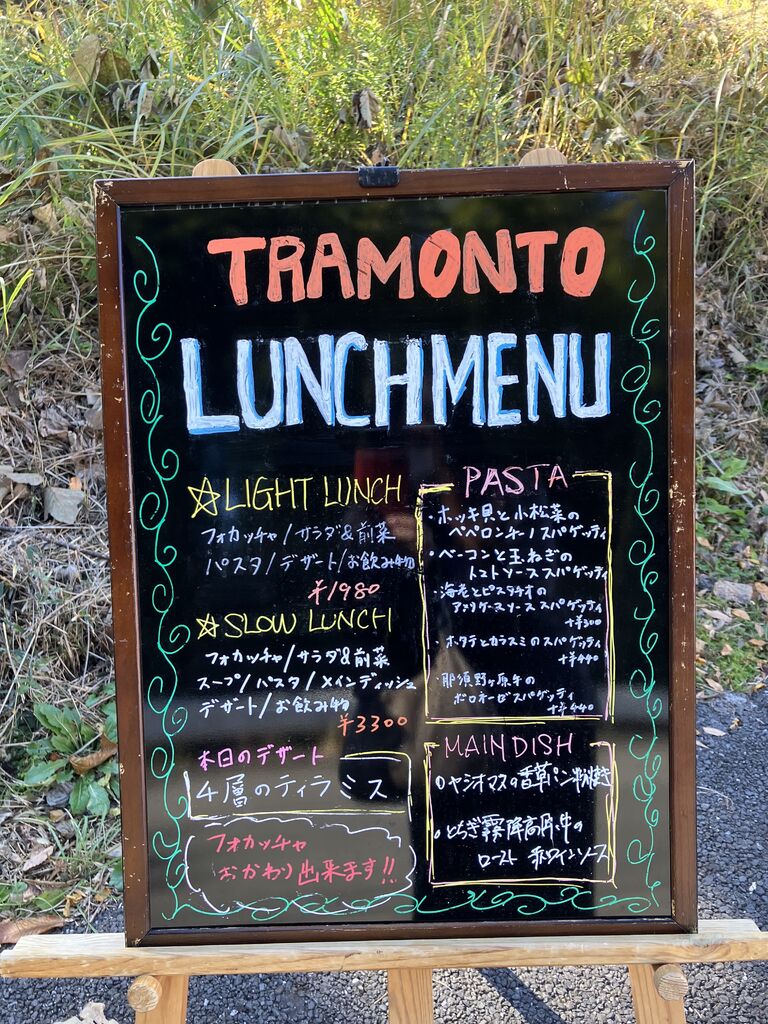 TRAMONTO
LUNCH MENU
☆LIGHT LUNCH
フォカッチャ/サラダ&前菜
パスタ/デザート/お飲み物
¥1980
☆SLOW LUNCH
フォカッチャ/サラダ&前菜
スープ/パスタ/メインディッシュ
デザート/お飲み物
¥3300
本日のデザート
4層のティラミス
フォカッチャ
おかわり出来ます!!
PASTA
・ホッキ貝と小松菜の
ペペロンチーノスパゲッティ
・ベーコンと玉ねぎの
トマトソーススパゲッティ
・海老とピスタチオの
アメリケーヌソーススパゲッティ
+¥300
・ホタテとカラスミのスパゲッティ
+¥440
・那須野ヶ原牛の
ボロネーゼスパゲッティ
+¥440
MAIN DISH
○ヤシオマスの香草パン粉焼き
○とちぎ霧降高原牛の
ロースト 赤ワインソース